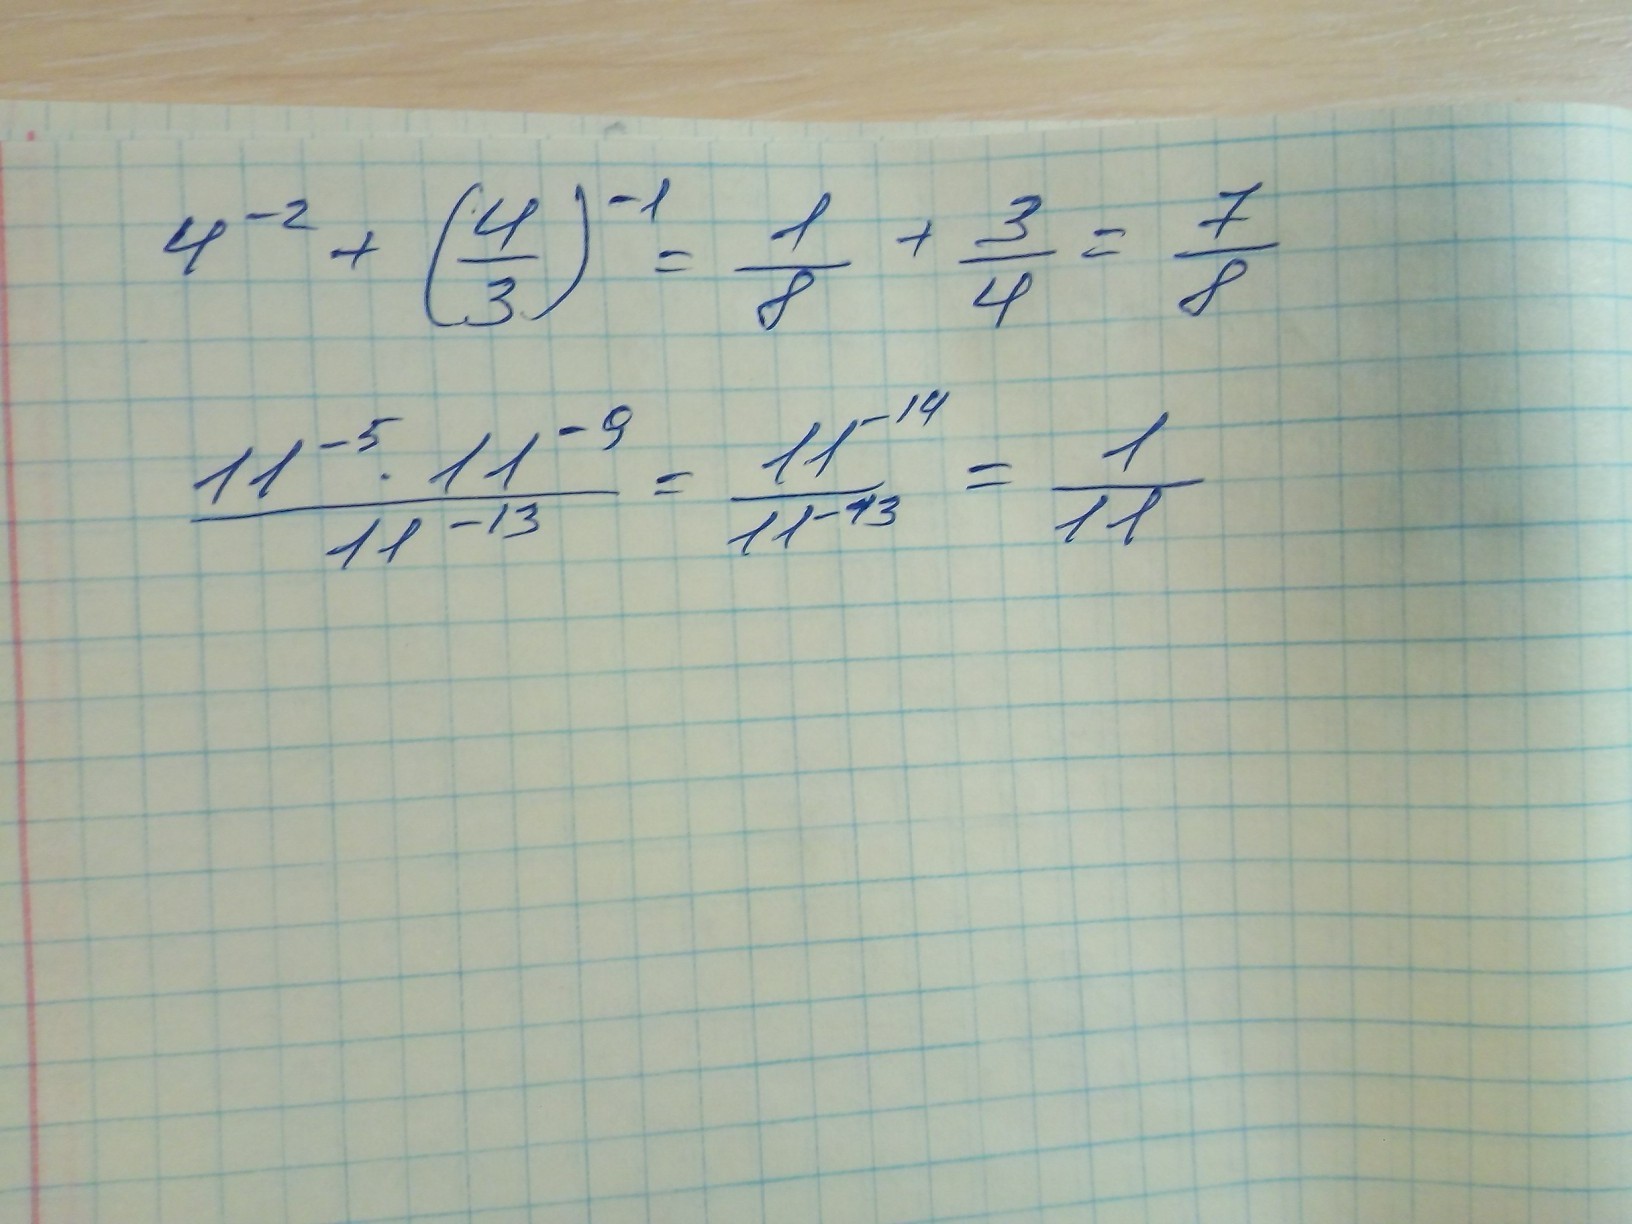 4^{-2} + (4/3)^{-1} = 1/8 + 3/4 = 7/8
(11^{-5} · 11^{-9})/11^{-13} = 11^{-14}/11^{-13} = 1/11